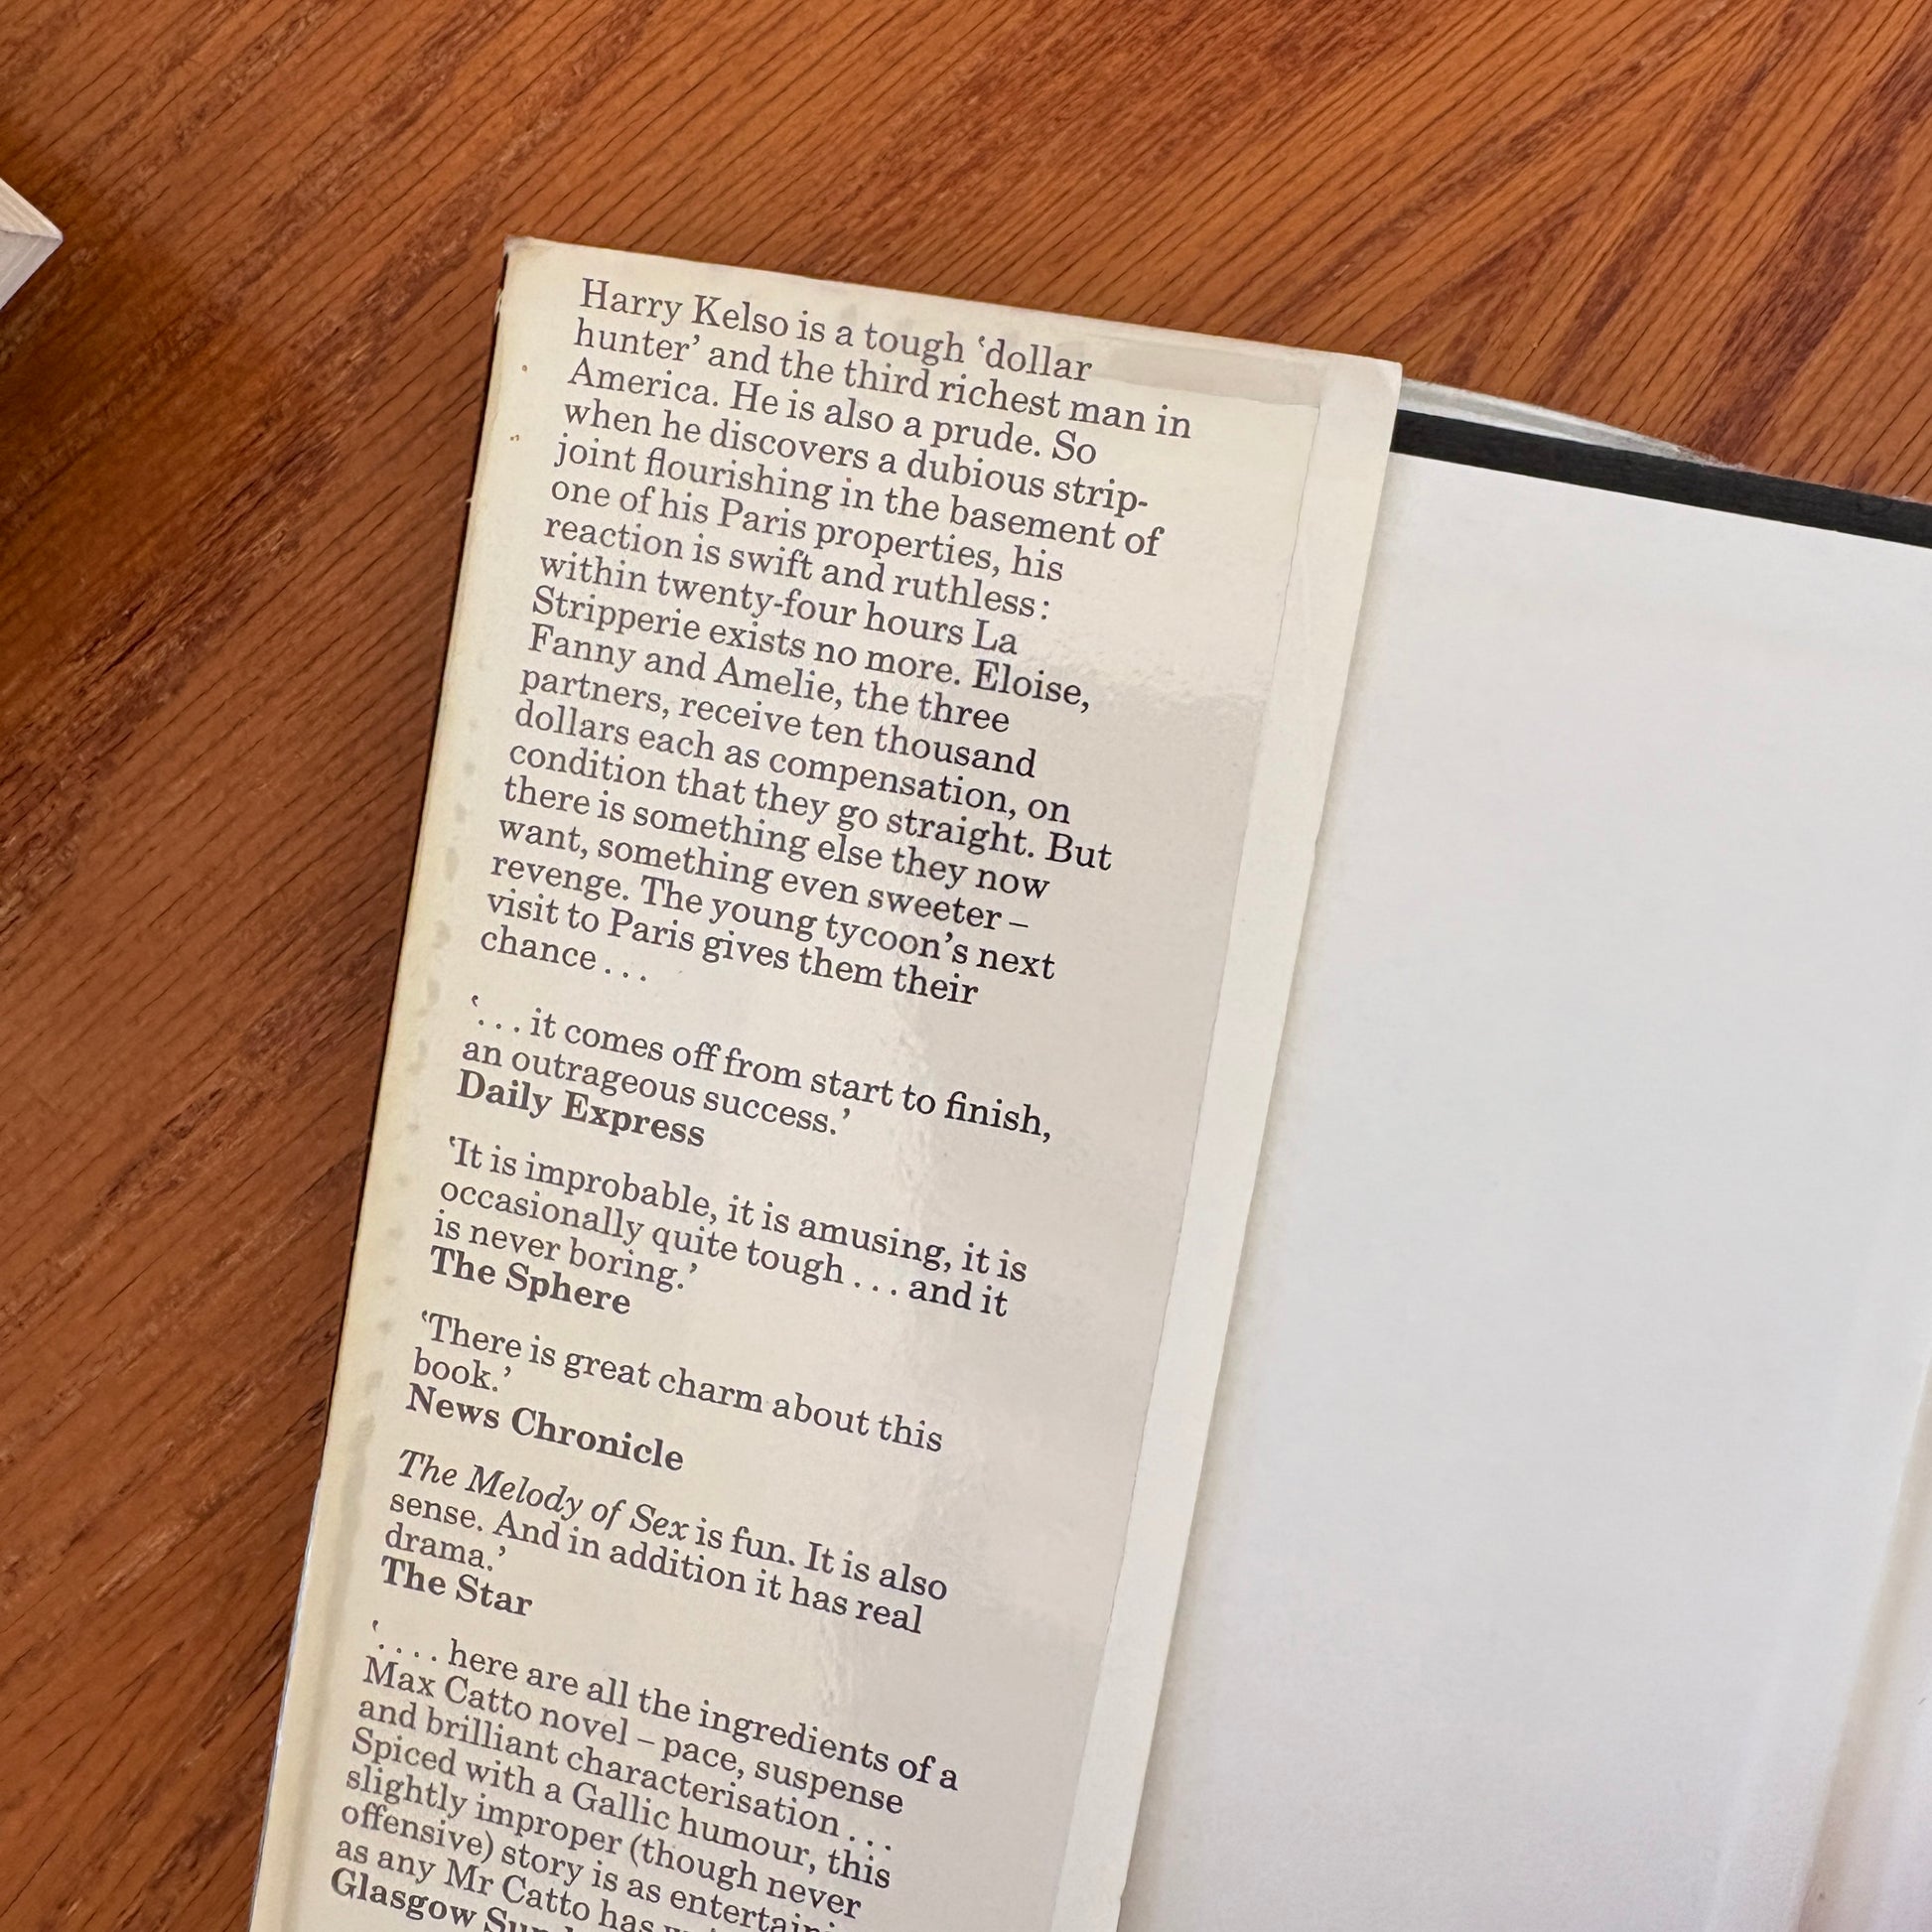 Harry Kelso is a tough ‘dollar
hunter’ and the third richest man in
America. He is also a prude. So
when he discovers a dubious strip-
joint flourishing in the basement of
one of his Paris properties, his
reaction is swift and ruthless:
within twenty-four hours La
Stripperie exists no more. Eloise,
Fanny and Amelie, the three
partners, receive ten thousand
dollars each as compensation, on
condition that they go straight. But
there is something else they now
want, something even sweeter –
revenge. The young tycoon’s next
visit to Paris gives them their
chance...
‘...it comes off from start to finish,
an outrageous success.’
Daily Express
‘It is improbable, it is amusing, it is
occasionally quite tough...and it
is never boring.’
The Sphere
‘There is great charm about this
book.’
News Chronicle
The Melody of Sex is fun. It is also
sense. And in addition it has real
drama.’
The Star
‘....here are all the ingredients of a
Max Catto novel – pace, suspense
and brilliant characterisation...
Spiced with a Gallic humour, this
slightly improper (though never
offensive) story is as
as any Mr Catto has
Glasgow